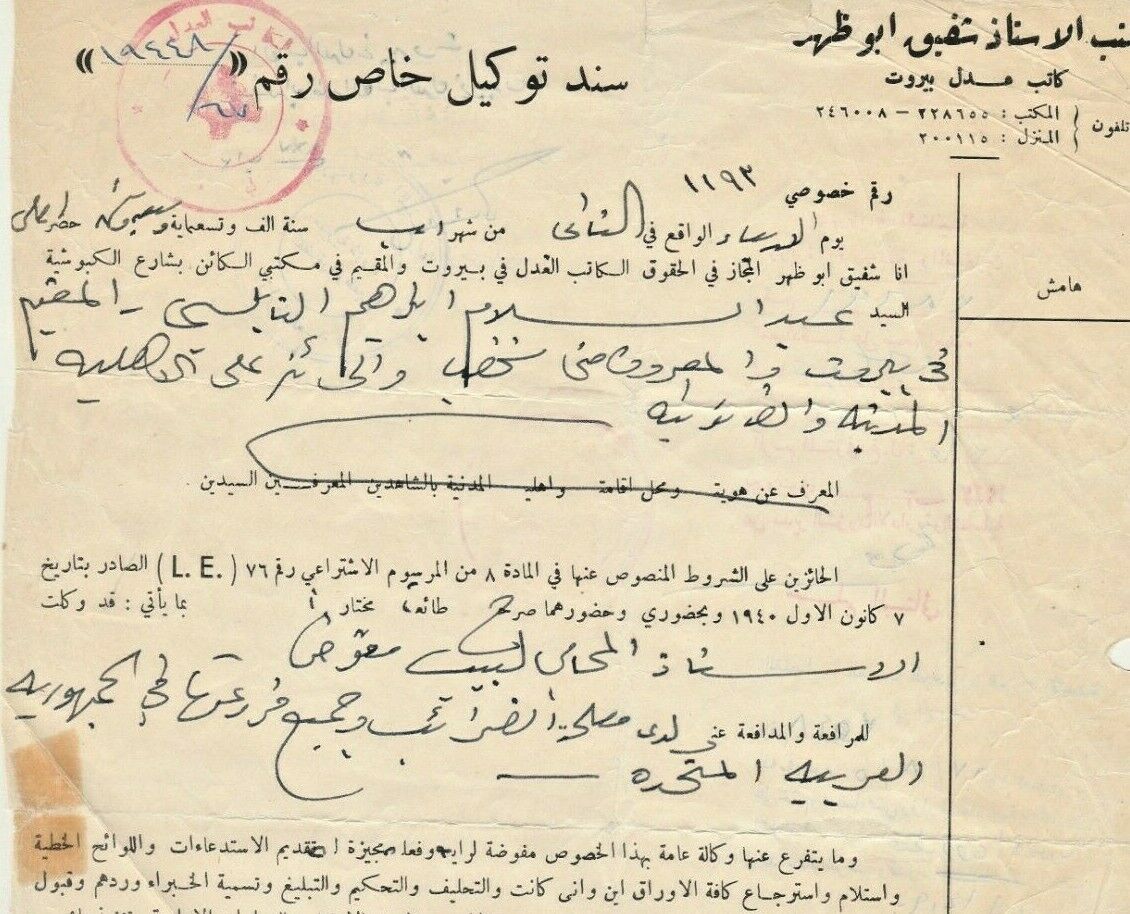 الاستاذ شفيق ابو ظهر
كاتب عدل بيروت
تلفون { المكتب : ٢٢٨٦٥٥ - ٢٤٦٠٠٨
المنزل : ٢٠٠١١٥
سند توكيل خاص رقم «١٩٤٤٨/٦٧»
رقم خصوصي ١١٩٣
يوم الاربعاء الواقع في الثاني من شهر اب سنة الف وتسعماية حضر امامي
انا شفيق ابو ظهر المجاز في الحقوق الكاتب العدل في بيروت والمقيم في مكتبي الكائن بشارع الكبوشية
هامش
السيد عبد السلام ابراهيم النابلسي المقيم
في بيروت والمعروف مني شخصيا والحائز على الاهلية
المدنية والقانونية
المعرف عن هويته ومحل اقامته واهليته المدنية بالشاهدين المعرفين السيدين
الحائزين على الشروط المنصوص عنها في المادة ٨ من المرسوم الاشتراعي رقم ٧٦ ( L. E. ) الصادر بتاريخ
٧ كانون الاول ١٩٤٠ وبحضوري وحضورهما صرح طائعا مختارا بما يأتي : قد وكلت
الاستاذ المحامي لبيب معوض
للمرافعة والمدافعة عني لدى مصلحة الضرائب وجميع فروعها في الجمهورية
العربية المتحدة
وما يتفرع عنها وكالة عامة بهذا الخصوص مفوضة لرايه وفعله مجيزة له تقديم الاستدعاءات واللوائح الخطية
واستلام واسترجاع كافة الاوراق اين وانى كانت والتحليف والتحكيم والتبليغ وتسمية الخبراء وردهم وقبول